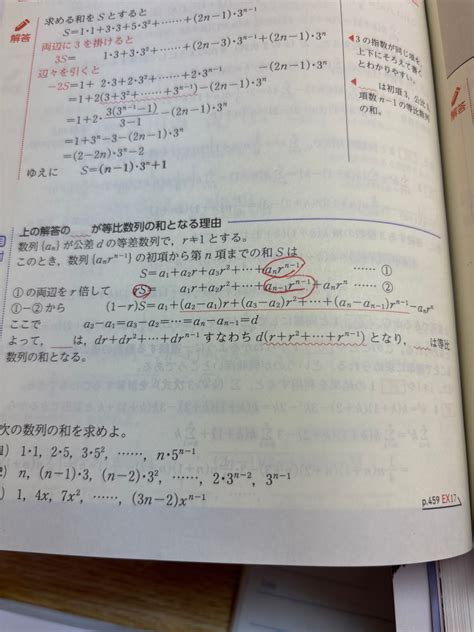 解答
求める和をSとすると
S=1・1+3・3+5・3²+……+(2n-1)・3ⁿ⁻¹
両辺に3を掛けると
3S= 1・3+3・3²+……+(2n-3)・3ⁿ⁻¹+(2n-1)・3ⁿ
辺々を引くと
-2S=1+ 2・3+2・3²+……+2・3ⁿ⁻¹ -(2n-1)・3ⁿ
=1+2(3+3²+……+3ⁿ⁻¹)-(2n-1)・3ⁿ
=1+2・3(3ⁿ⁻¹-1)/(3-1)-(2n-1)・3ⁿ
=1+3ⁿ-3-(2n-1)・3ⁿ
=(2-2n)・3ⁿ-2
ゆえに S=(n-1)・3ⁿ+1
◀3の指数が同じ項を,
上下にそろえて書く
とわかりやすい。
◀ は初項3, 公比3,
項数n-1の等比数列
の和。
上の解答の が等比数列の和となる理由
数列{aₙ}が公差dの等差数列で, r≠1とする。
このとき, 数列{aₙrⁿ⁻¹}の初項から第n項までの和Sは
S=a₁+a₂r+a₃r²+…+aₙrⁿ⁻¹ ……①
①の両辺をr倍して rS= a₁r+a₂r²+…+aₙ₋₁rⁿ⁻¹+aₙrⁿ ……②
①-②から (1-r)S=a₁+(a₂-a₁)r+(a₃-a₂)r²+…+(aₙ-aₙ₋₁)rⁿ⁻¹-aₙrⁿ
ここで a₂-a₁=a₃-a₂=…=aₙ-aₙ₋₁=d
よって, は, dr+dr²+…+drⁿ⁻¹ すなわち d(r+r²+…+rⁿ⁻¹)となり, は等比
数列の和となる。
次の数列の和を求めよ。
1) 1・1, 2・5, 3・5², ……, n・5ⁿ⁻¹
2) n, (n-1)・3, (n-2)・3², ……, 2・3ⁿ⁻², 3ⁿ⁻¹
) 1, 4x, 7x², ……, (3n-2)xⁿ⁻¹
p.459 EX17